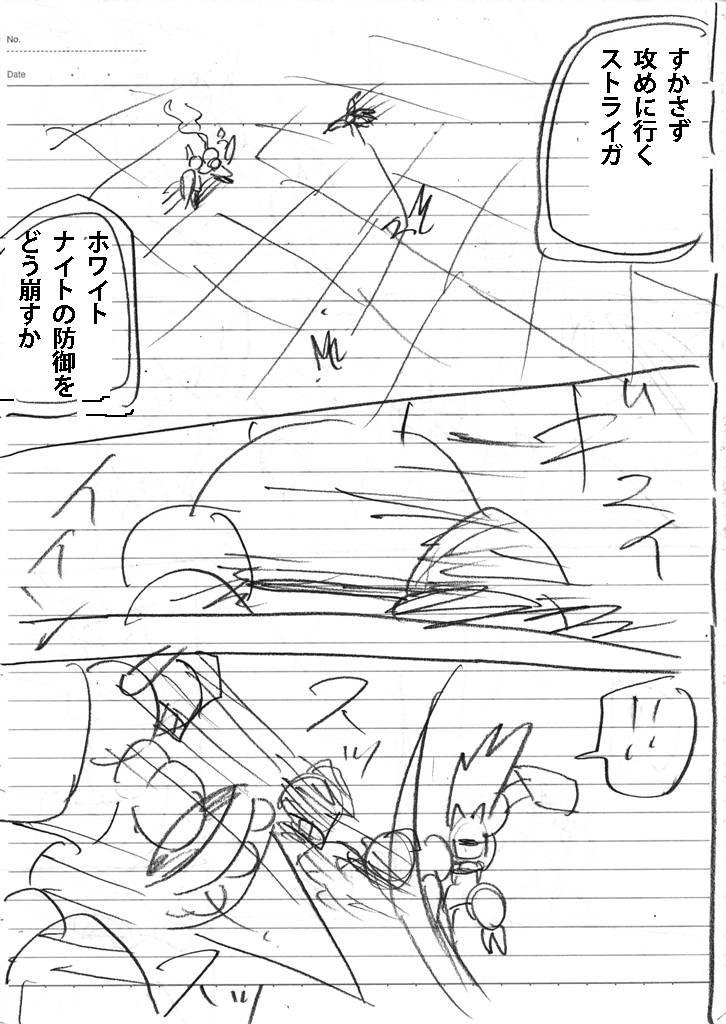 No.
Date
すかさず
攻めに行く
ストライガ
ホワイト
ナイトの防御を
どう崩すか
キュイ
イイン
!!
スッ
スッ